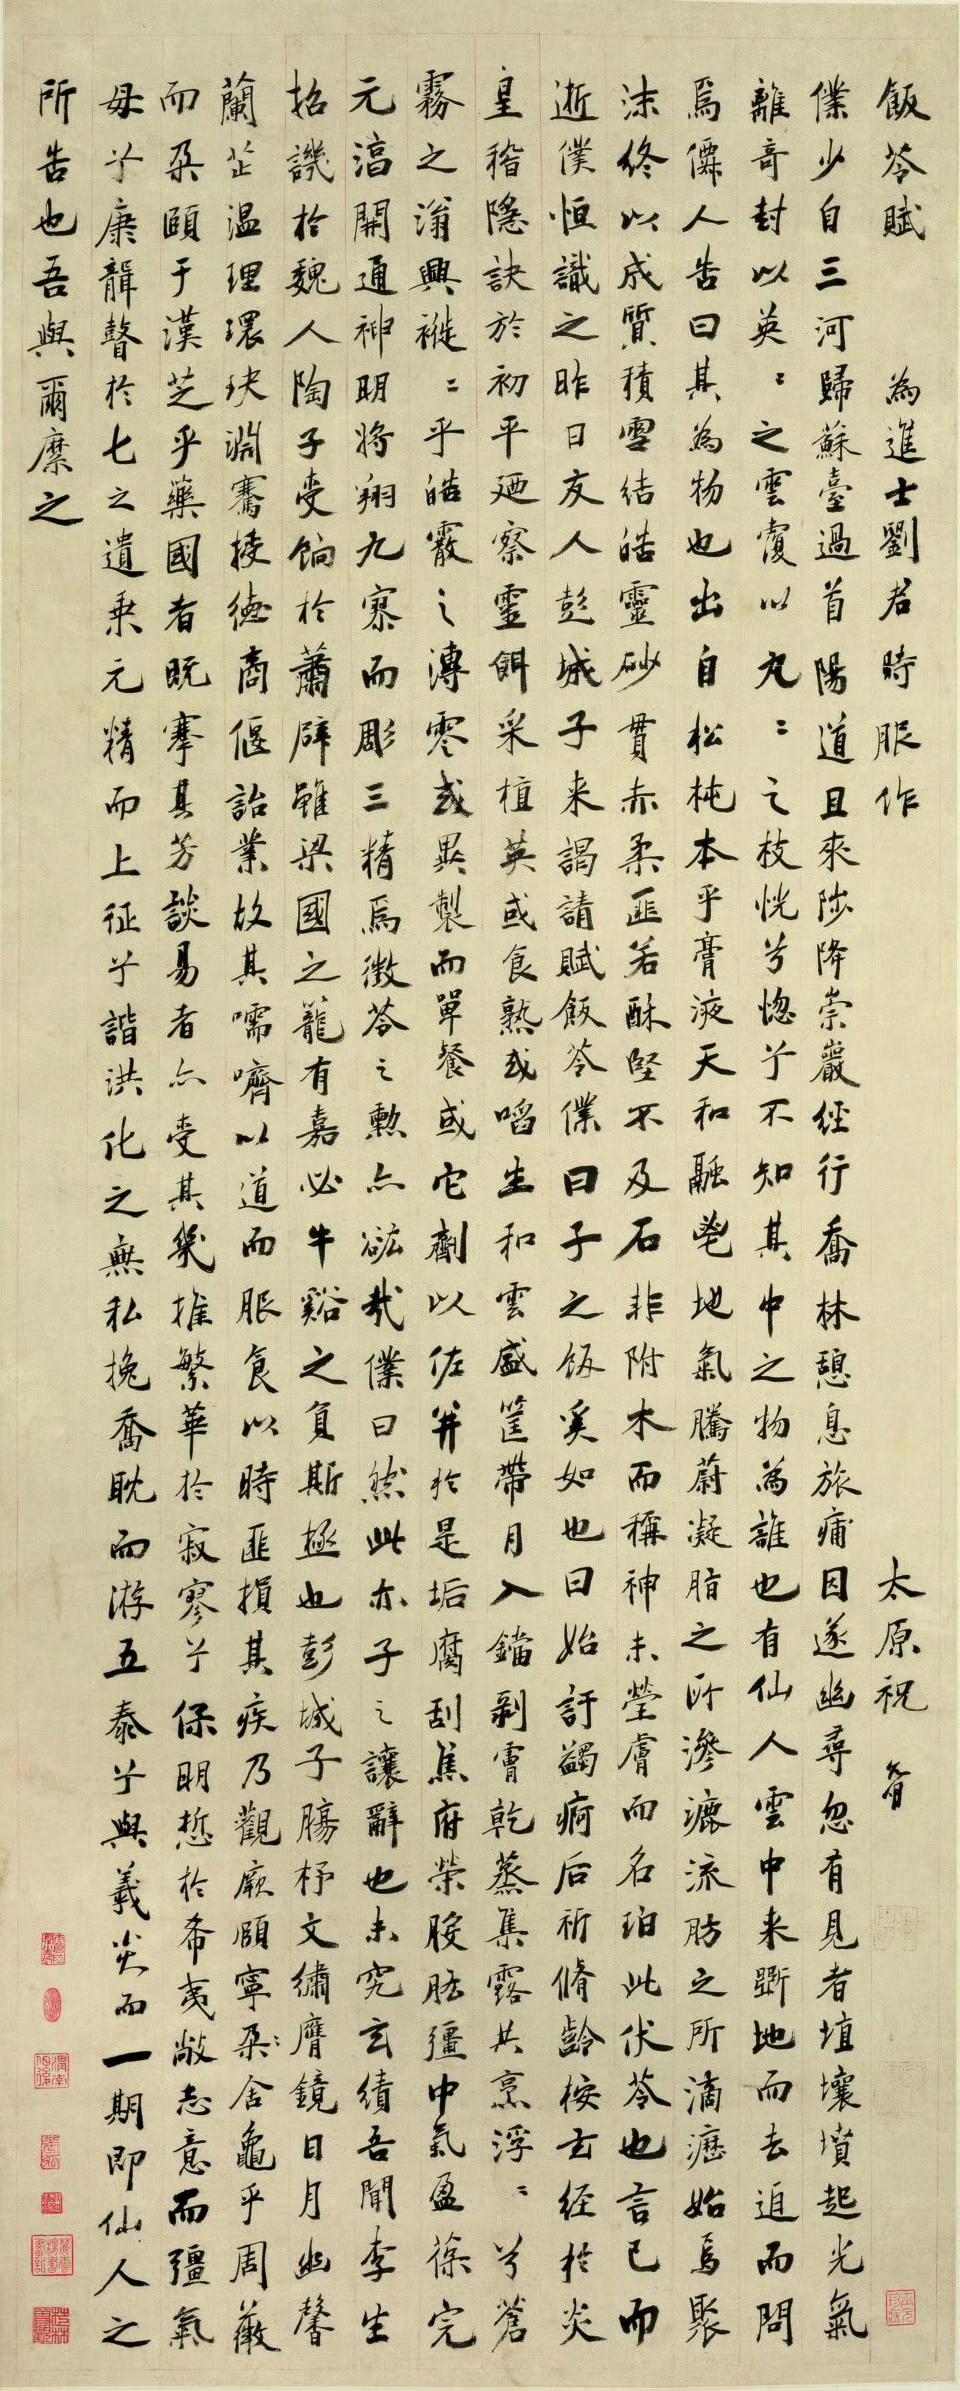 飯苓賦 為進士劉君時服作 太原祝
僕少自三河歸蘇臺過首陽道且來陟降崇巖經行喬林憩息旅痡因遂幽尋忽有見者埴壤墳起光氣
離奇封以英〻之雲覆以丸〻之枝恍兮惚兮不知其中之物為誰也有仙人雲中来斲地而去追而問
焉僊人告曰其為物也出自松杶本乎膏液天和融鬯地氣騰蔚凝脂之所滲漉流肪之所滴瀝始焉聚
沫終以成質積雪結皓靈砂貫赤柔匪若酥堅不及石非附木而稱神未瑩膚而名珀此伏苓也言已而
逝僕恒識之昨日友人彭城子来謁請賦飯苓僕曰子之飯奚如也曰始訝蠲痾后祈脩齡桉玄经於炎
皇稽隱訣於初平廼察靈餌采植英或食熟或啗生和雲盛筐帶月入鐺剥膚乾蒸集露共烹浮〻兮蒼
霧之滃興褷〻乎皓霰之漙零或異製而單餐或它劑以佐并於是垢腐刮焦府榮腴胠彊中氣盈葆完
元滀開通神明將翔九寥而彫三精焉徴苓之勲亦㳒哉僕曰然此亦子之讓辭也未究玄績吾聞李生
招譏於魏人陶子受餉於蕭辟雖梁國之籠有嘉必牛谿之負斯極也彭城子腸杼文繡膺鏡日月幽馨
蘭芷温理環玦淵騫㨗德商偃詒業故其嚅嚌以道而服食以時匪損其疾乃觀厥頤寧朶〻舍龜乎周薇
而朶頤于漢芝乎藥國者既搴其芳談易者亦受其㡬推繁華於寂寥兮保明悊於希夷敞志意而彊氣
毋兮康韻聲於七之遺乗元精而上征兮諧洪化之無私挽喬耽而游五泰兮與羲炎而一期即仙人之
所告也吾與爾縻之